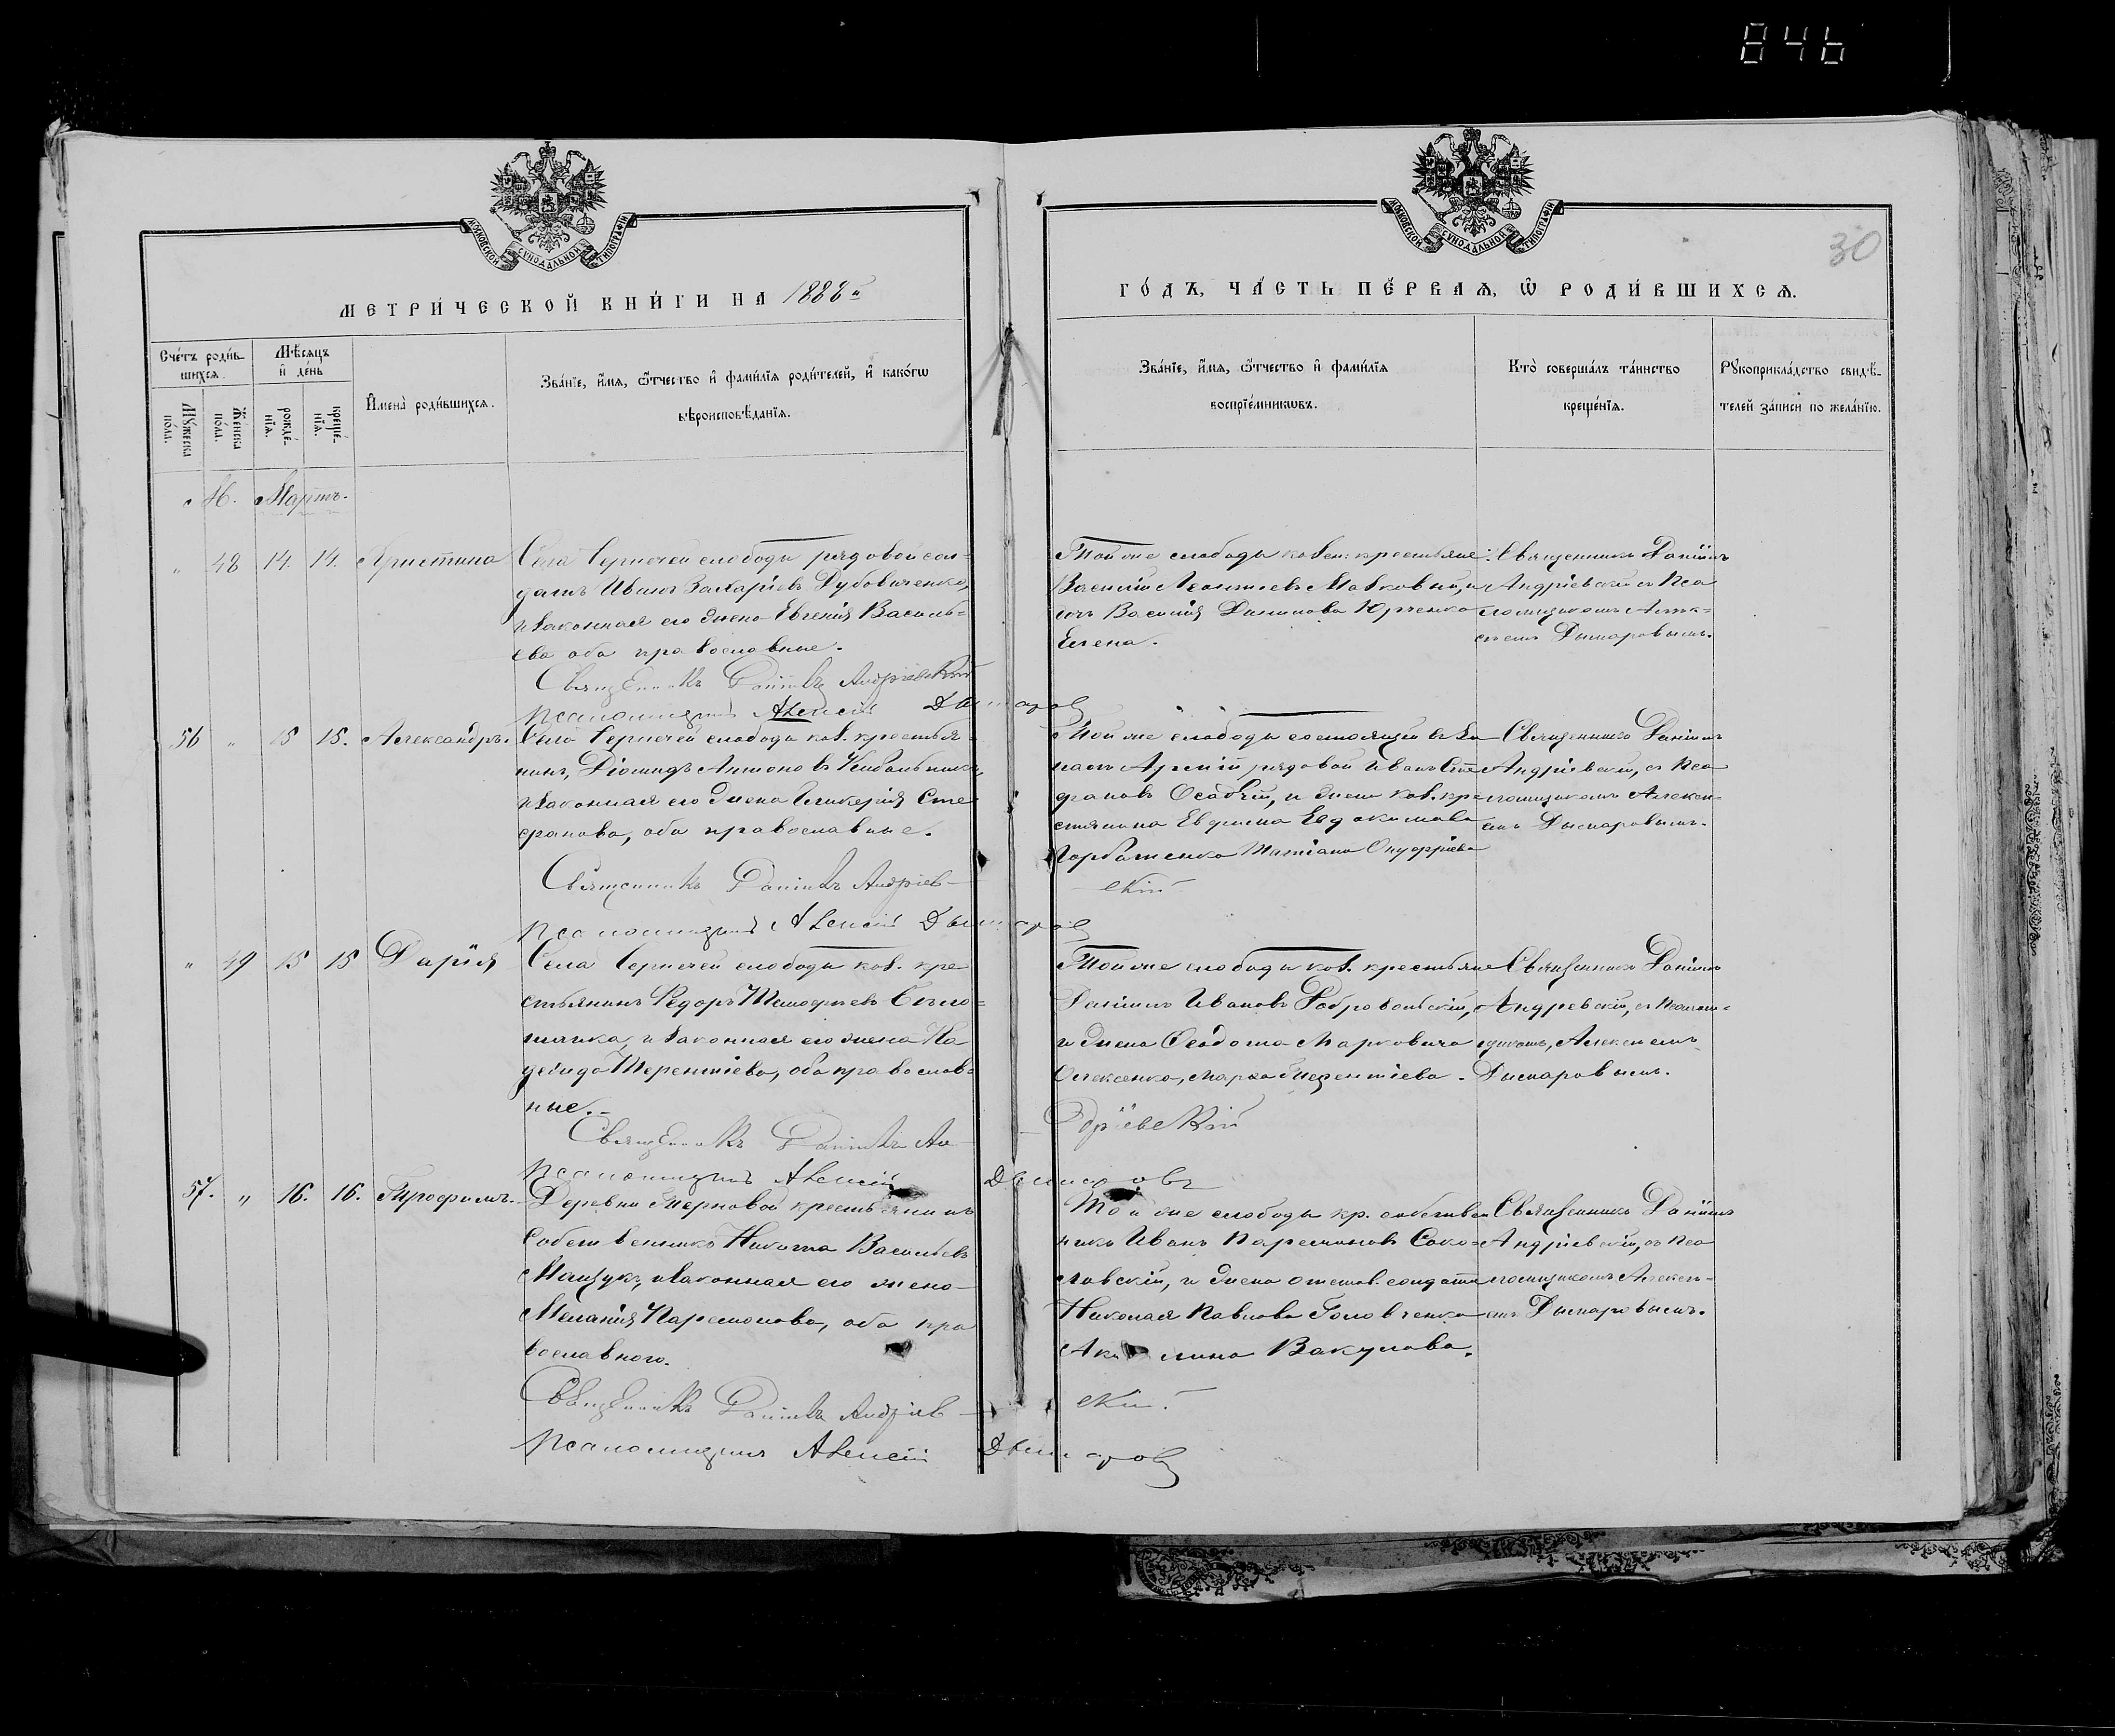 846
30
МОСКОВСКОЙ СѴНОДАЛЬНОЙ ТИПОГРАФІИ
МОСКОВСКОЙ СѴНОДАЛЬНОЙ ТИПОГРАФІИ
МЕТРИ́ЧЕСКОЙ КНИ́ГИ НА 1888й
ГО́ДЪ, ЧА́СТЬ ПЕ́РВАѦ, Ѡ РОДИ́ВШИХСѦ.
Сче́тъ роди́вшихсѧ.
Мꙋ́жеска по́ла.
Же́нска по́ла.
Мѣ́сѧцъ и де́нь
рожде́нїѧ.
креще́нїѧ.
И҆мена̀ роди́вшихсѧ.
Зва́нїе, и҆́мѧ, ѻ҆́тчество и҆ фамѝлїѧ роди́телей, и҆ како́гѡ
вѣроисповѣ́данїѧ.
Зва́нїе, и҆́мѧ, ѻ҆́тчество и҆ фамѝлїѧ
воспрїе́мникѡвъ.
Кто̀ соверша́лъ та́инство
креще́нїѧ.
Рꙋкоприкла́дство свидѣ́-
телей за́писи по жела́нїю.
М. Мартъ.
" 48 14. 14. Христина
Села Черничей слободы рядовой сол-
датъ Иванъ Захаріевъ Дубовиченко,
и законная его жена Евгенія Василь-
ева оба православные.
Священникъ Даніилъ Андріевскій
Псаломщикъ Алексій Дымаровъ
Той же слободы казен: крестьяне:
Василій Леонтіевъ Мавковый, и
дочь Василія Данилова Юрченка
Елена.
Священникъ Даніилъ
Андріевскій съ Пса
ломщикомъ Алек-
сѣемъ Дымаровымъ.
56 " 15 15. Александръ.
Села Черничей слободы каз. крестья-
нинъ, Діомидъ Антоновъ
и законная его жена Гликерія Сте
фанова, оба православные.
Священникъ Даніилъ Андріев-
скій
Псаломщикъ Алексій Дымаровъ
Той же слободы состоящій въ за
пасѣ Арміи рядовой Иванъ Сте
фановъ и жена каз. кре
стянина Евфима Евдокимова
Горбатенка Татіана Онуфріева
Священникъ Даніилъ
Андріевскій, съ Пса
ломщикомъ Алексѣ-
емъ Дымаровымъ.
" 49 15 15 Дарія
Села Черничей слободы каз. кре
стьянинъ Федоръ Тимофіевъ
и законная его жена На
дежда Терентіева, оба православ-
ные.
Священникъ Даніилъ Ан-
дріевскій
Псаломщикъ Алексій Дымаровъ
Той же слободы каз. крестьяне
Даніилъ Ивановъ Добровольскій,
и жена Ѳеодота Марковича
Олексенка, Марѳа Терентіева.
Священникъ Даніилъ
Андревскій, съ Псалом-
щикомъ, Алексѣемъ
Дымаровымъ.
57. " 16. 16. Трофимъ.
Деревни Терновой крестьянинъ
собственникъ Никита Васильевъ
и законная его жена
Меланія Парѳемонова, оба пра
вославного.
Священникъ Даніилъ Андріев-
скій.
Псаломщикъ Алексій Дымаровъ
Той же слободы кр. собствен
никъ Иванъ Парѳемоновъ Соко-
ловскій, и жена отстав. солдата
Николая Павлова Головченка
Акилина Вакулова.
Священникъ Даніилъ
Андріевскій, съ Пса
ломщикомъ Алексѣ-
емъ Дымаровымъ.